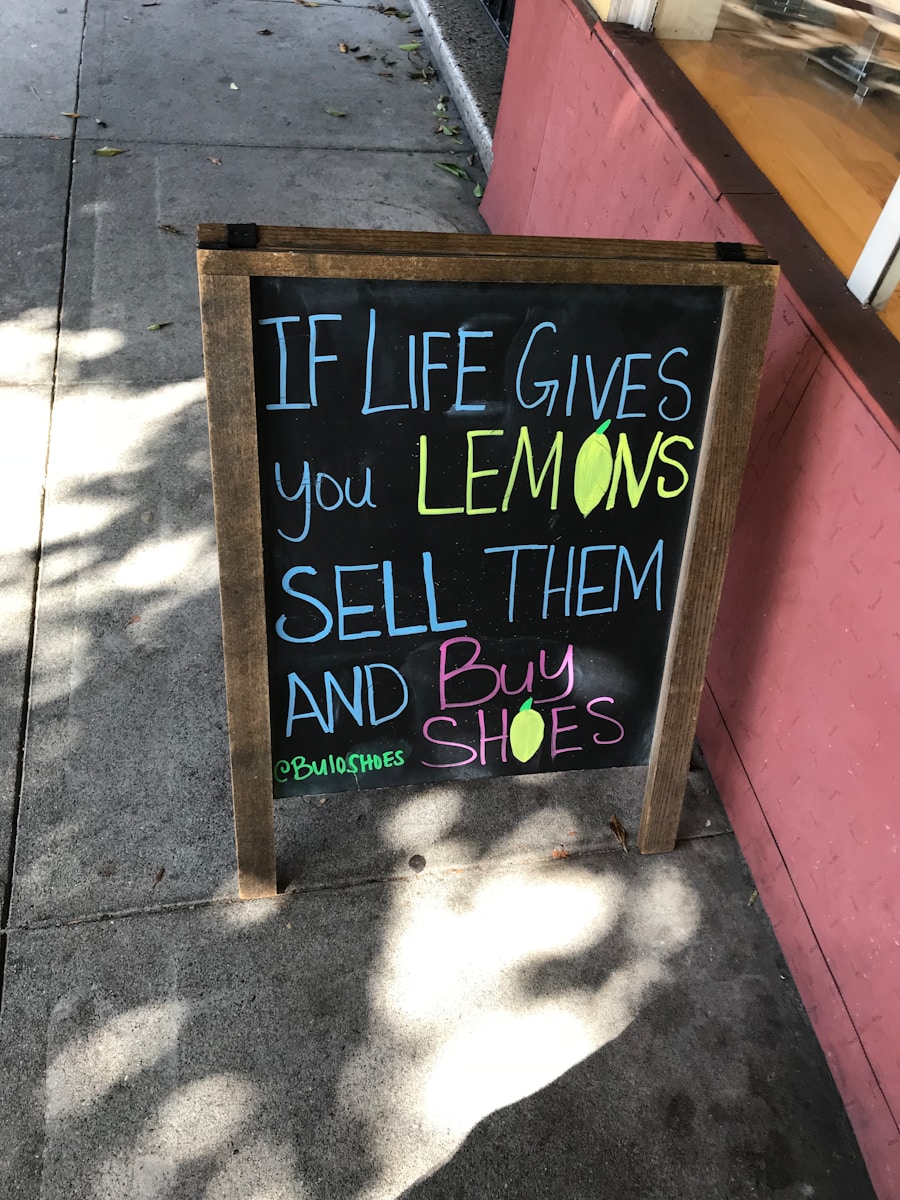 IF LIFE GIVES
you LEMONS
SELL THEM
AND Buy
SHOES
@BuloSHOES